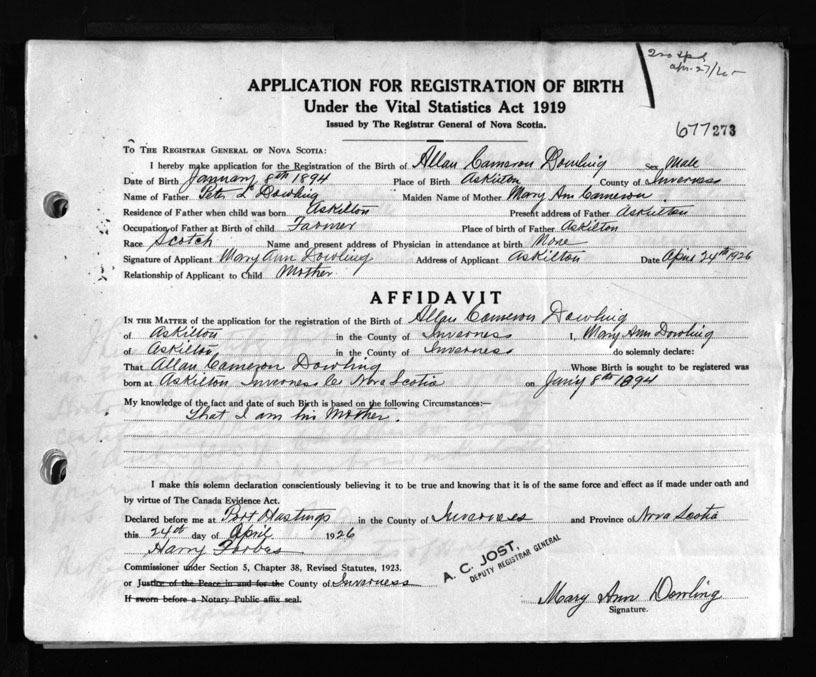 APPLICATION FOR REGISTRATION OF BIRTH
Under the Vital Statistics Act 1919
Issued by The Registrar General of Nova Scotia.
677273
To The Registrar General of Nova Scotia:
I hereby make application for the Registration of the Birth of Allan Cameron Dowling Sex Male
Date of Birth January 8th 1894 Place of Birth Askilton County of Inverness
Name of Father Peter L Dowling Maiden Name of Mother Mary Ann Cameron
Residence of Father when child was born Askilton Present address of Father Askilton
Occupation of Father at Birth of child Farmer Place of birth of Father Askilton
Race Scotch Name and present address of Physician in attendance at birth None
Signature of Applicant Mary Ann Dowling Address of Applicant Askilton Date April 24th 1926
Relationship of Applicant to Child Mother
AFFIDAVIT
In the Matter of the application for the registration of the Birth of Allan Cameron Dowling
of Askilton in the County of Inverness I, Mary Ann Dowling
of Askilton in the County of Inverness do solemnly declare:
That Allan Cameron Dowling Whose Birth is sought to be registered was
born at Askilton Inverness Co Nova Scotia on Jan'y 8th 1894
My knowledge of the fact and date of such Birth is based on the following Circumstances:—
That I am his Mother.
I make this solemn declaration conscientiously believing it to be true and knowing that it is of the same force and effect as if made under oath and
by virtue of The Canada Evidence Act.
Declared before me at Port Hastings in the County of Inverness and Province of Nova Scotia
this 24th day of April 1926
Harry Forbes
Commissioner under Section 5, Chapter 38, Revised Statutes, 1923.
or Justice of the Peace in and for the County of Inverness
If sworn before a Notary Public affix seal.
A. C. JOST,
DEPUTY REGISTRAR GENERAL
Mary Ann Dowling
Signature.